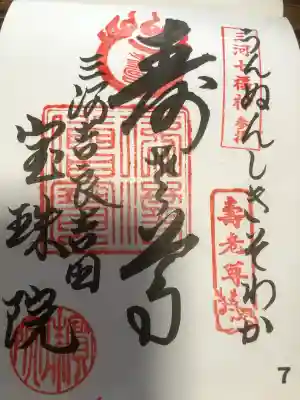 三河七福神
うんぬんしきそわか
壽老尊
寿老尊
三河吉良吉田
宝珠院
7